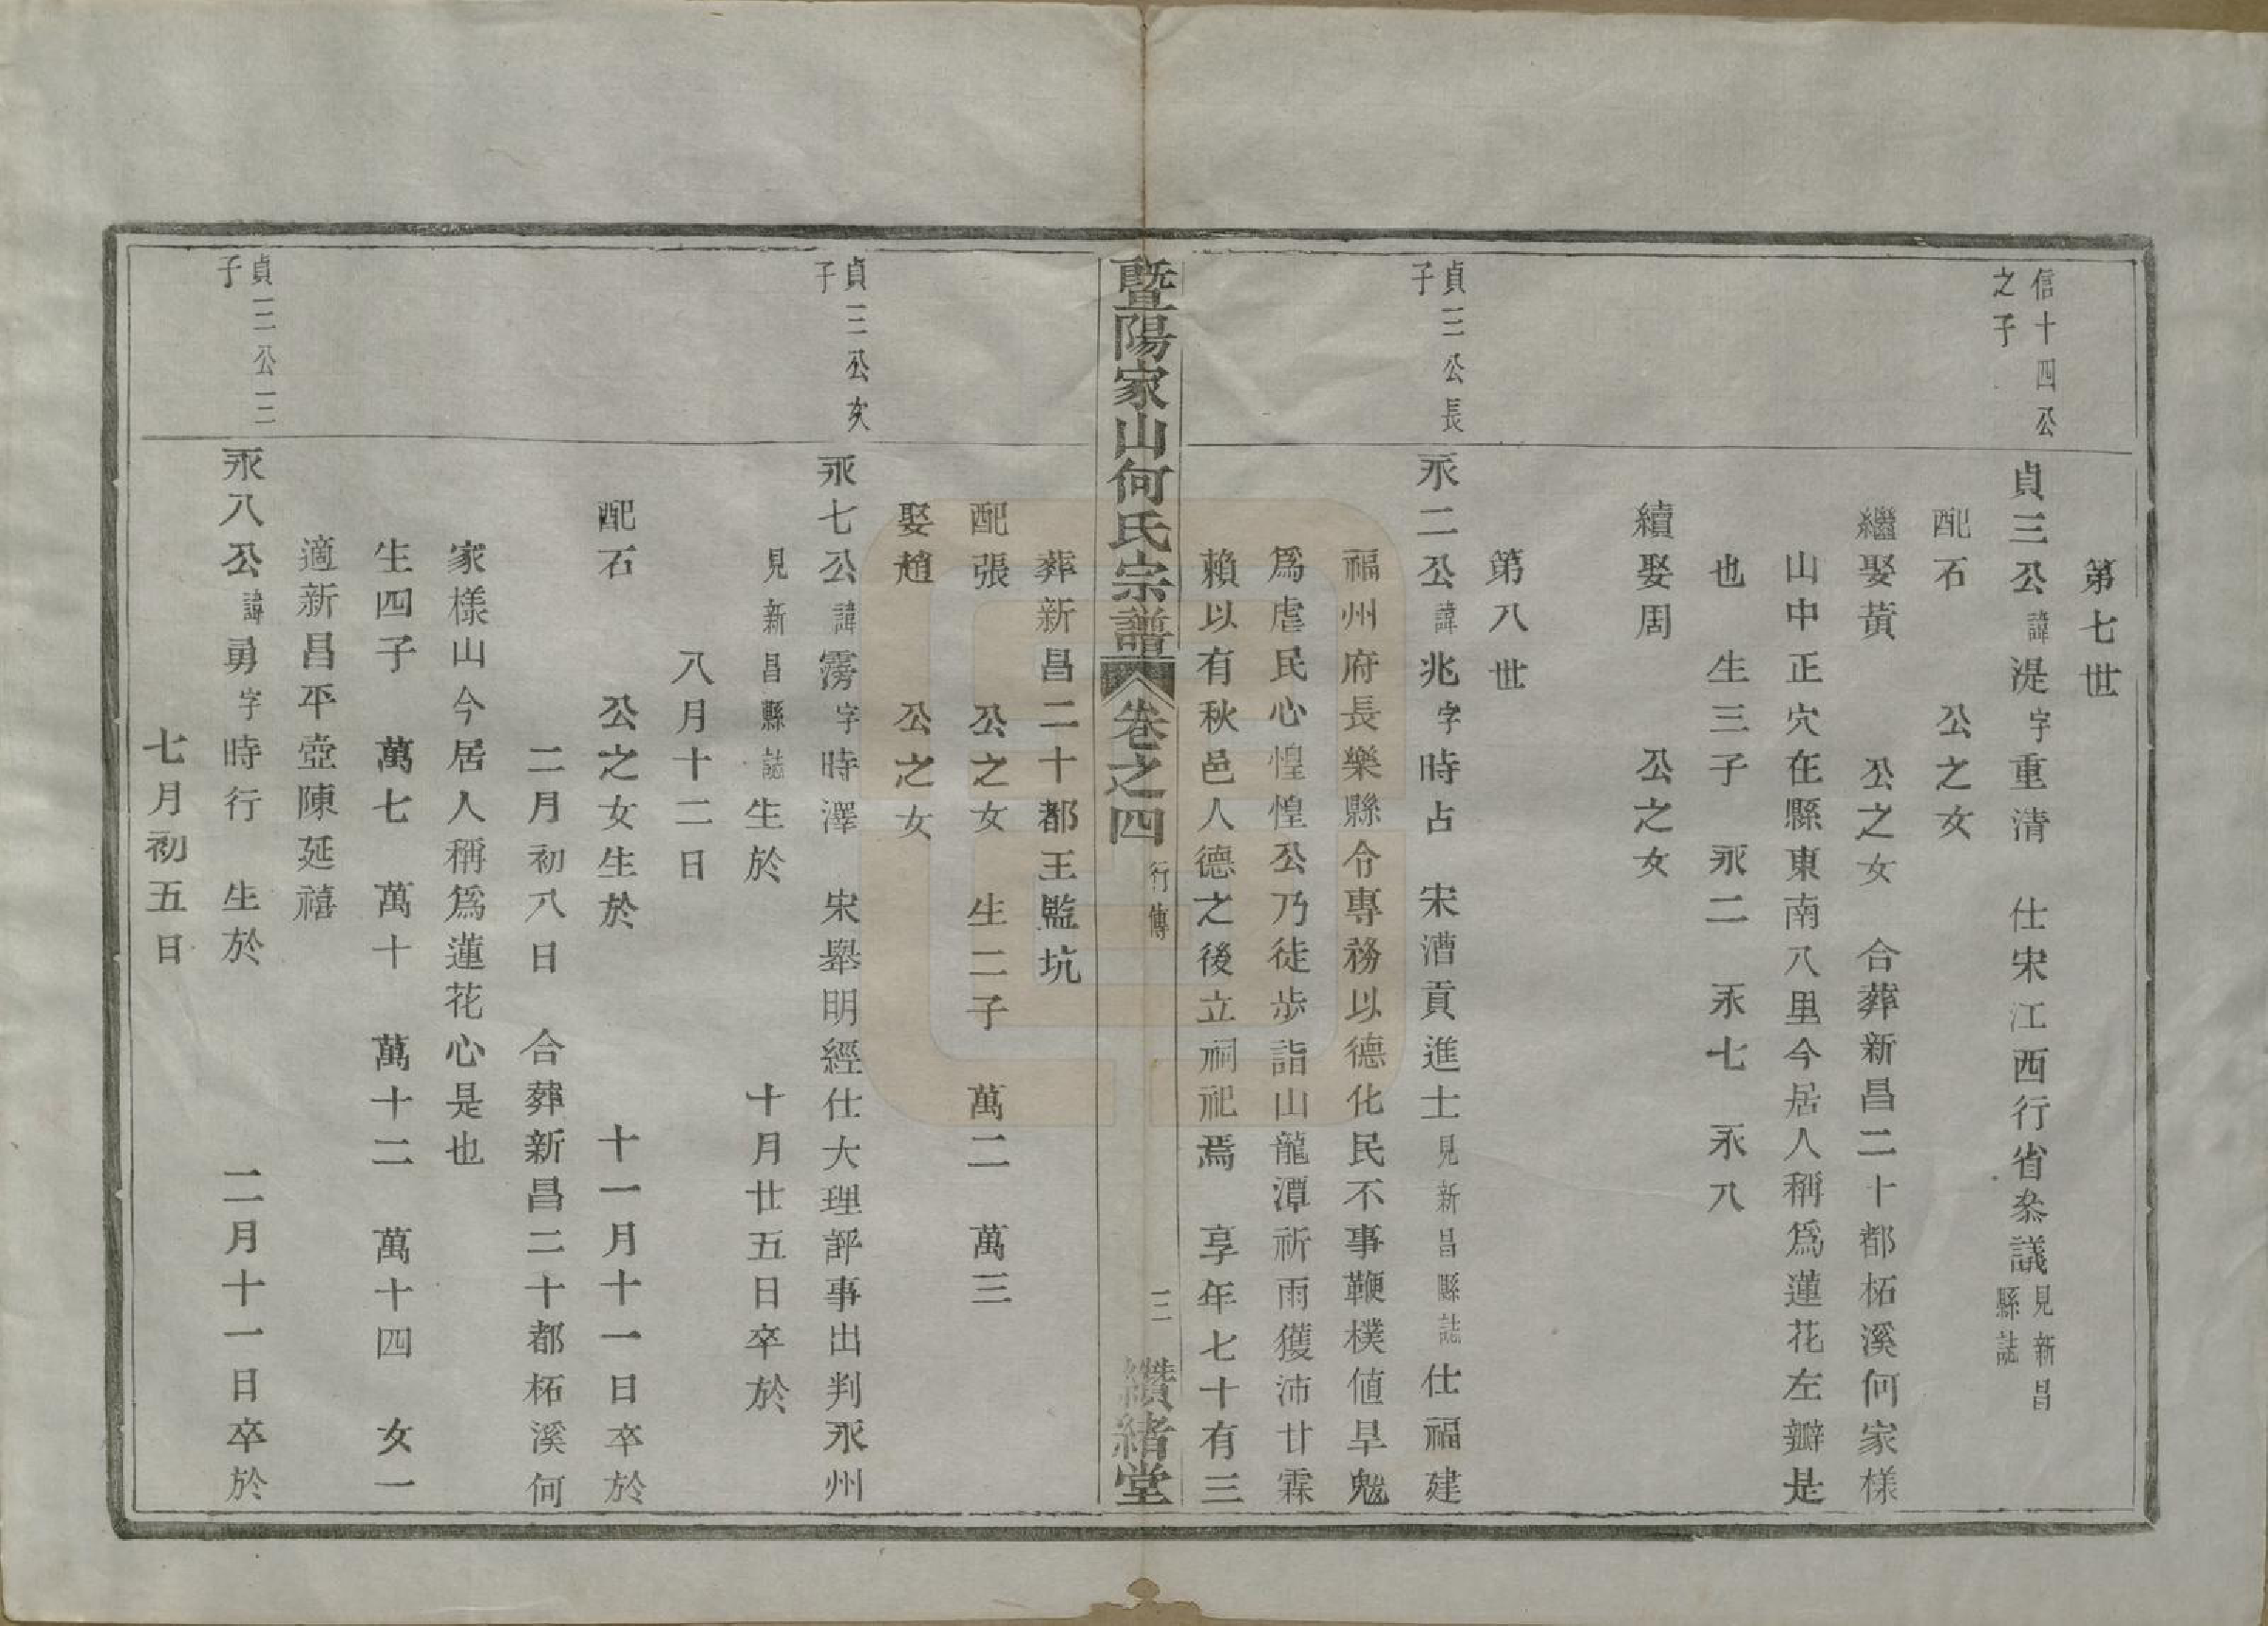 第七世
信十四公
之子
貞三公諱湜字重清　仕宋江西行省叅議見新昌
縣誌
配石　　公之女
繼娶黃　　公之女　合葬新昌二十都柘溪何家樣
山中正穴在縣東南八里今居人稱爲蓮花左瓣是
也　生三子　永二　永七　永八
續娶周　　公之女
第八世
貞三公長
子
永二公諱兆字時占　宋漕貢進士見新昌縣誌仕福建
福州府長樂縣令專務以德化民不事鞭樸値旱魃
爲虐民心惶惶公乃徒步詣山龍潭祈雨獲沛甘霖
賴以有秋邑人德之後立祠祀焉　享年七十有三
暨陽家山何氏宗譜　卷之四　行傳　三　纘緒堂
葬新昌二十都王監坑
配張　　公之女　生二子　萬二　萬三
娶趙　　公之女
貞三公次
子
永七公諱霶字時澤　宋舉明經仕大理評事出判永州
見新昌縣誌生於　　　　十月廿五日卒於
八月十二日
配石　　公之女生於　　　　十一月十一日卒於
二月初八日　合葬新昌二十都柘溪何
家樣山今居人稱爲蓮花心是也
生四子　萬七　萬十　萬十二　萬十四　女一
適新昌平壺陳延禧
貞三公三
子
永八公諱勇字時行　生於　　　　二月十一日卒於
七月初五日